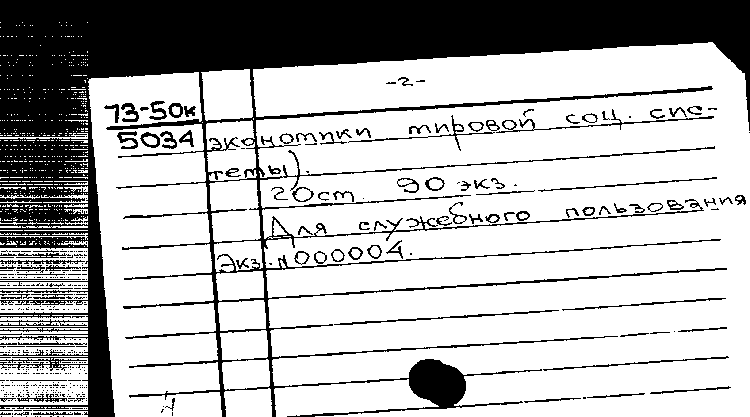 -2-
73-50к
5034 экономики мировой соц. сис-
темы).
20ст. 90 экз.
Для служебного пользования
Экз. N 000004.